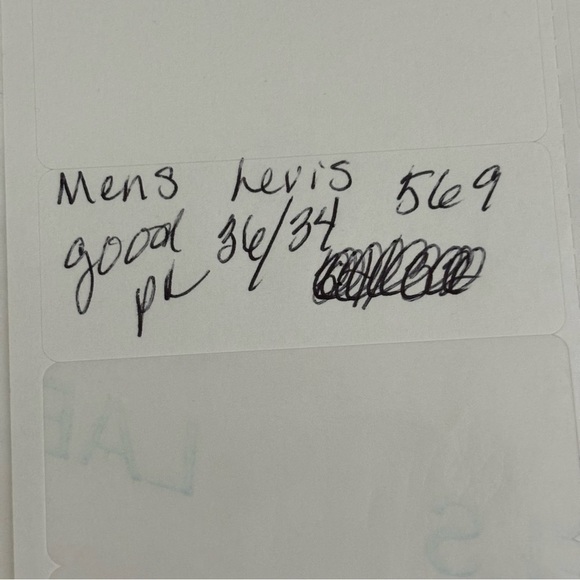 Mens Levis 569
good 36/34
pr